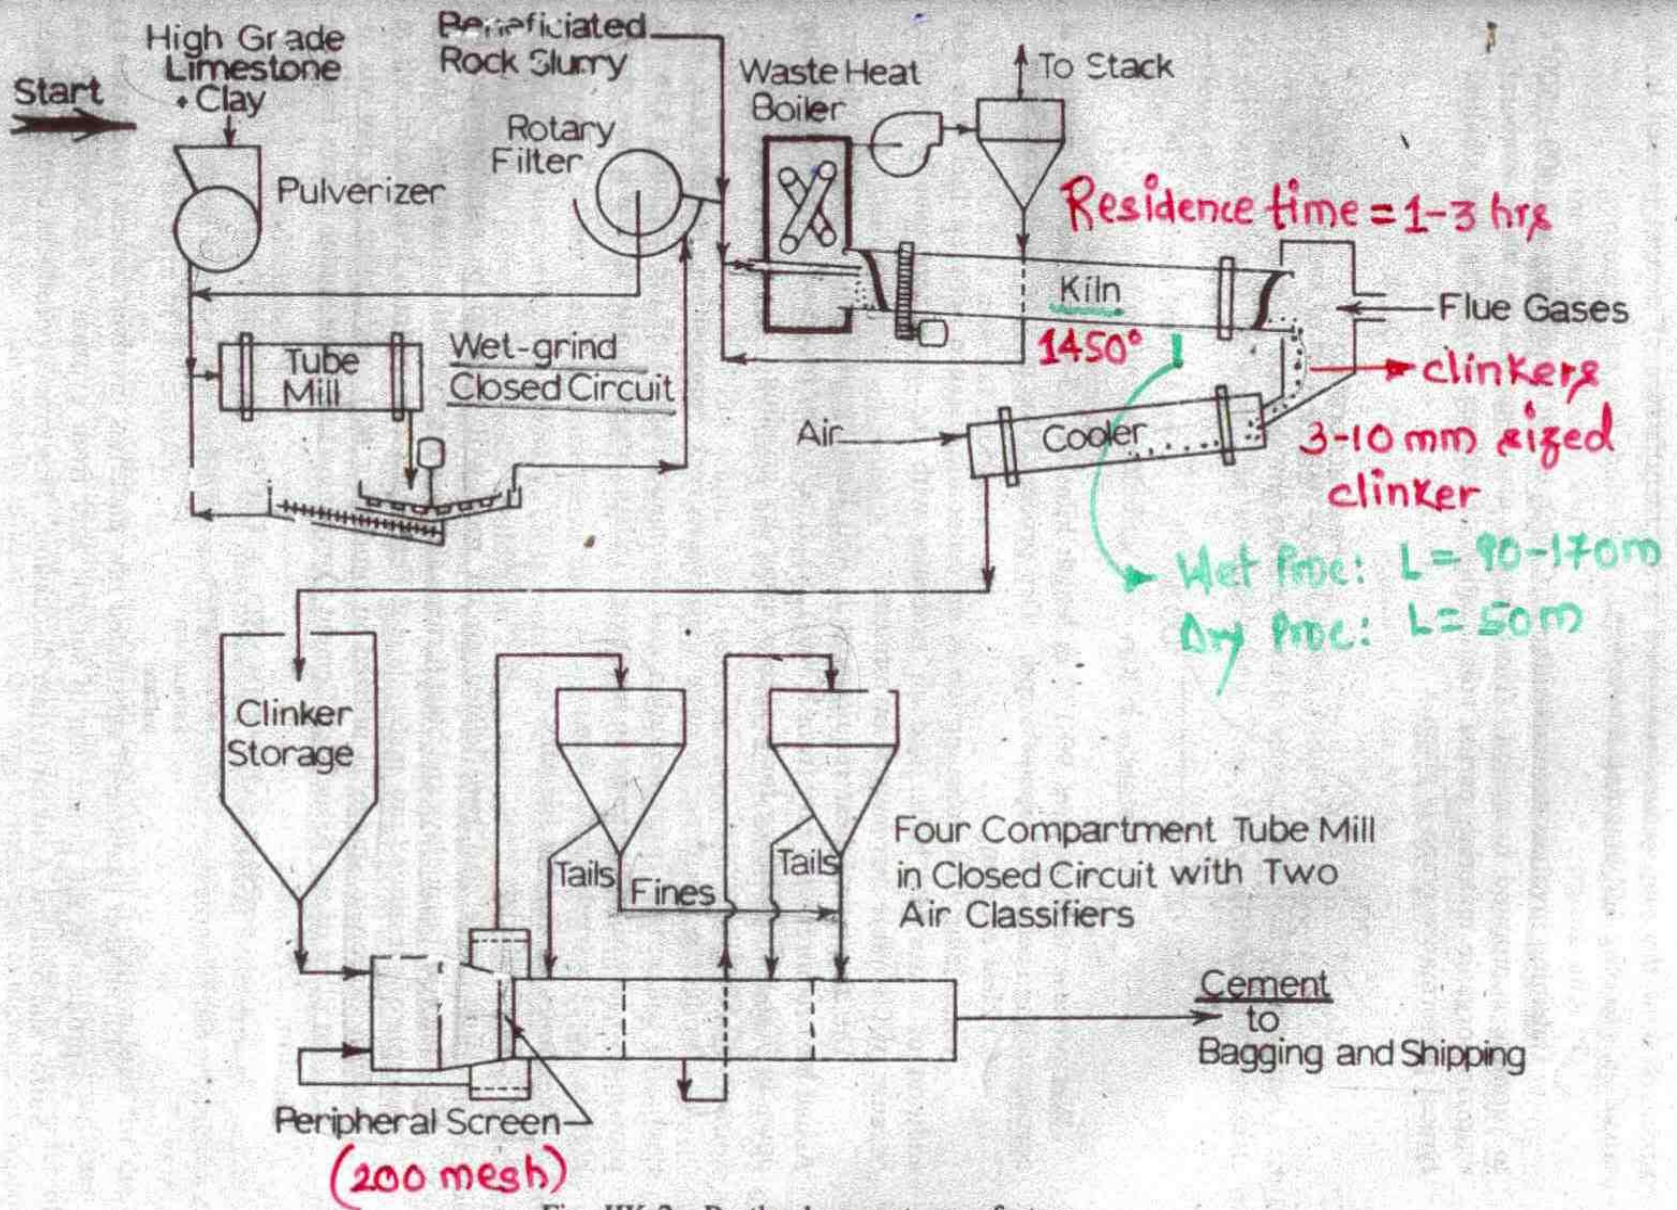 High Grade
Limestone
+ Clay
Start
Pulverizer
Beneficiated
Rock Slurry
Rotary
Filter
Waste Heat
Boiler
To Stack
Residence time = 1-3 hrs
Kiln
1450°
Flue Gases
clinkers
3-10 mm sized
clinker
Tube
Mill
Wet-grind
Closed Circuit
Air
Cooler
Wet Proc: L = 90-170m
Dry Proc: L = 50m
Clinker
Storage
Tails
Fines
Tails
Four Compartment Tube Mill
in Closed Circuit with Two
Air Classifiers
Cement
to
Bagging and Shipping
Peripheral Screen
(200 mesh)